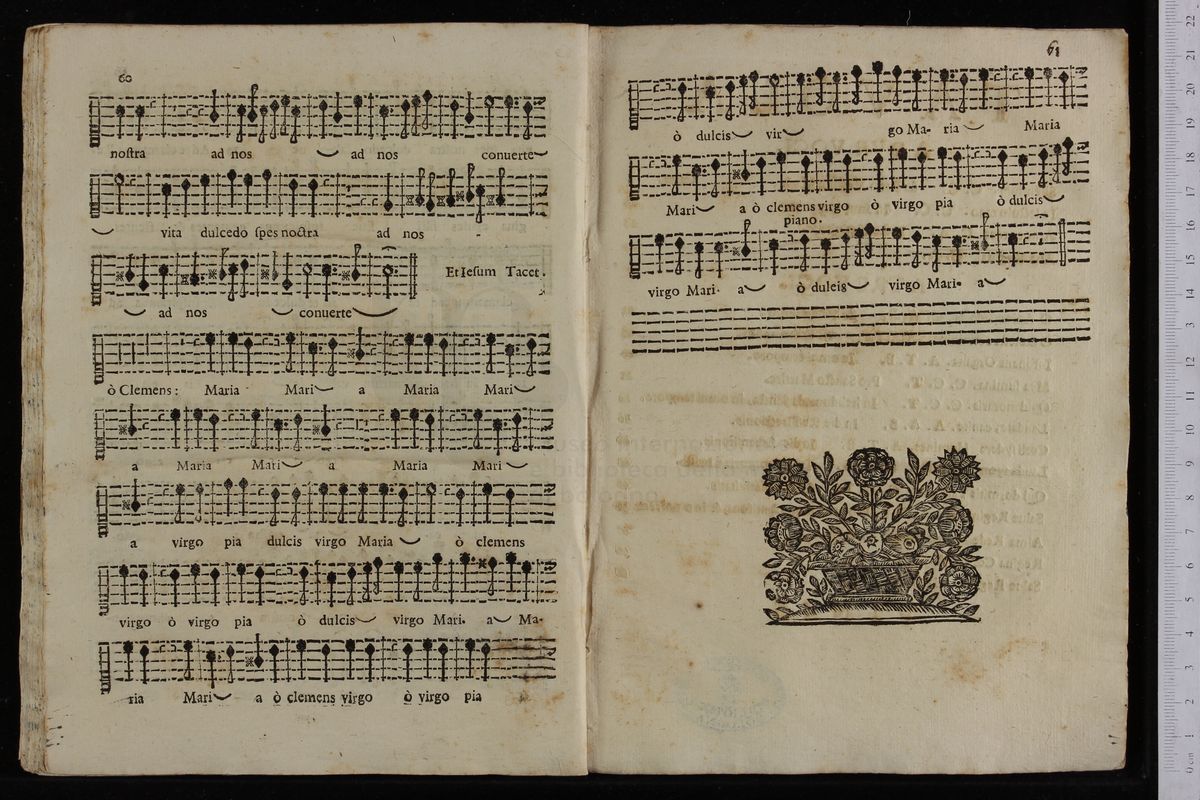 60
noſtra ad nos ad nos conuerte
vita dulcedo ſpes noſtra ad nos
Et Ieſum Tacet.
ad nos conuerte
ò Clemens: Maria Mari a Maria Mari
a Maria Mari a Maria Mari
a virgo pia dulcis virgo Maria ò clemens
virgo ò virgo pia ò dulcis virgo Mari. a Ma-
ria Mari a ò clemens virgo ò virgo pia
61
ò dulcis vir go Ma- ria Maria
Mari a ò clemens virgo ò virgo pia ò dulcis
piano.
virgo Mari. a ò dulcis virgo Mari. a